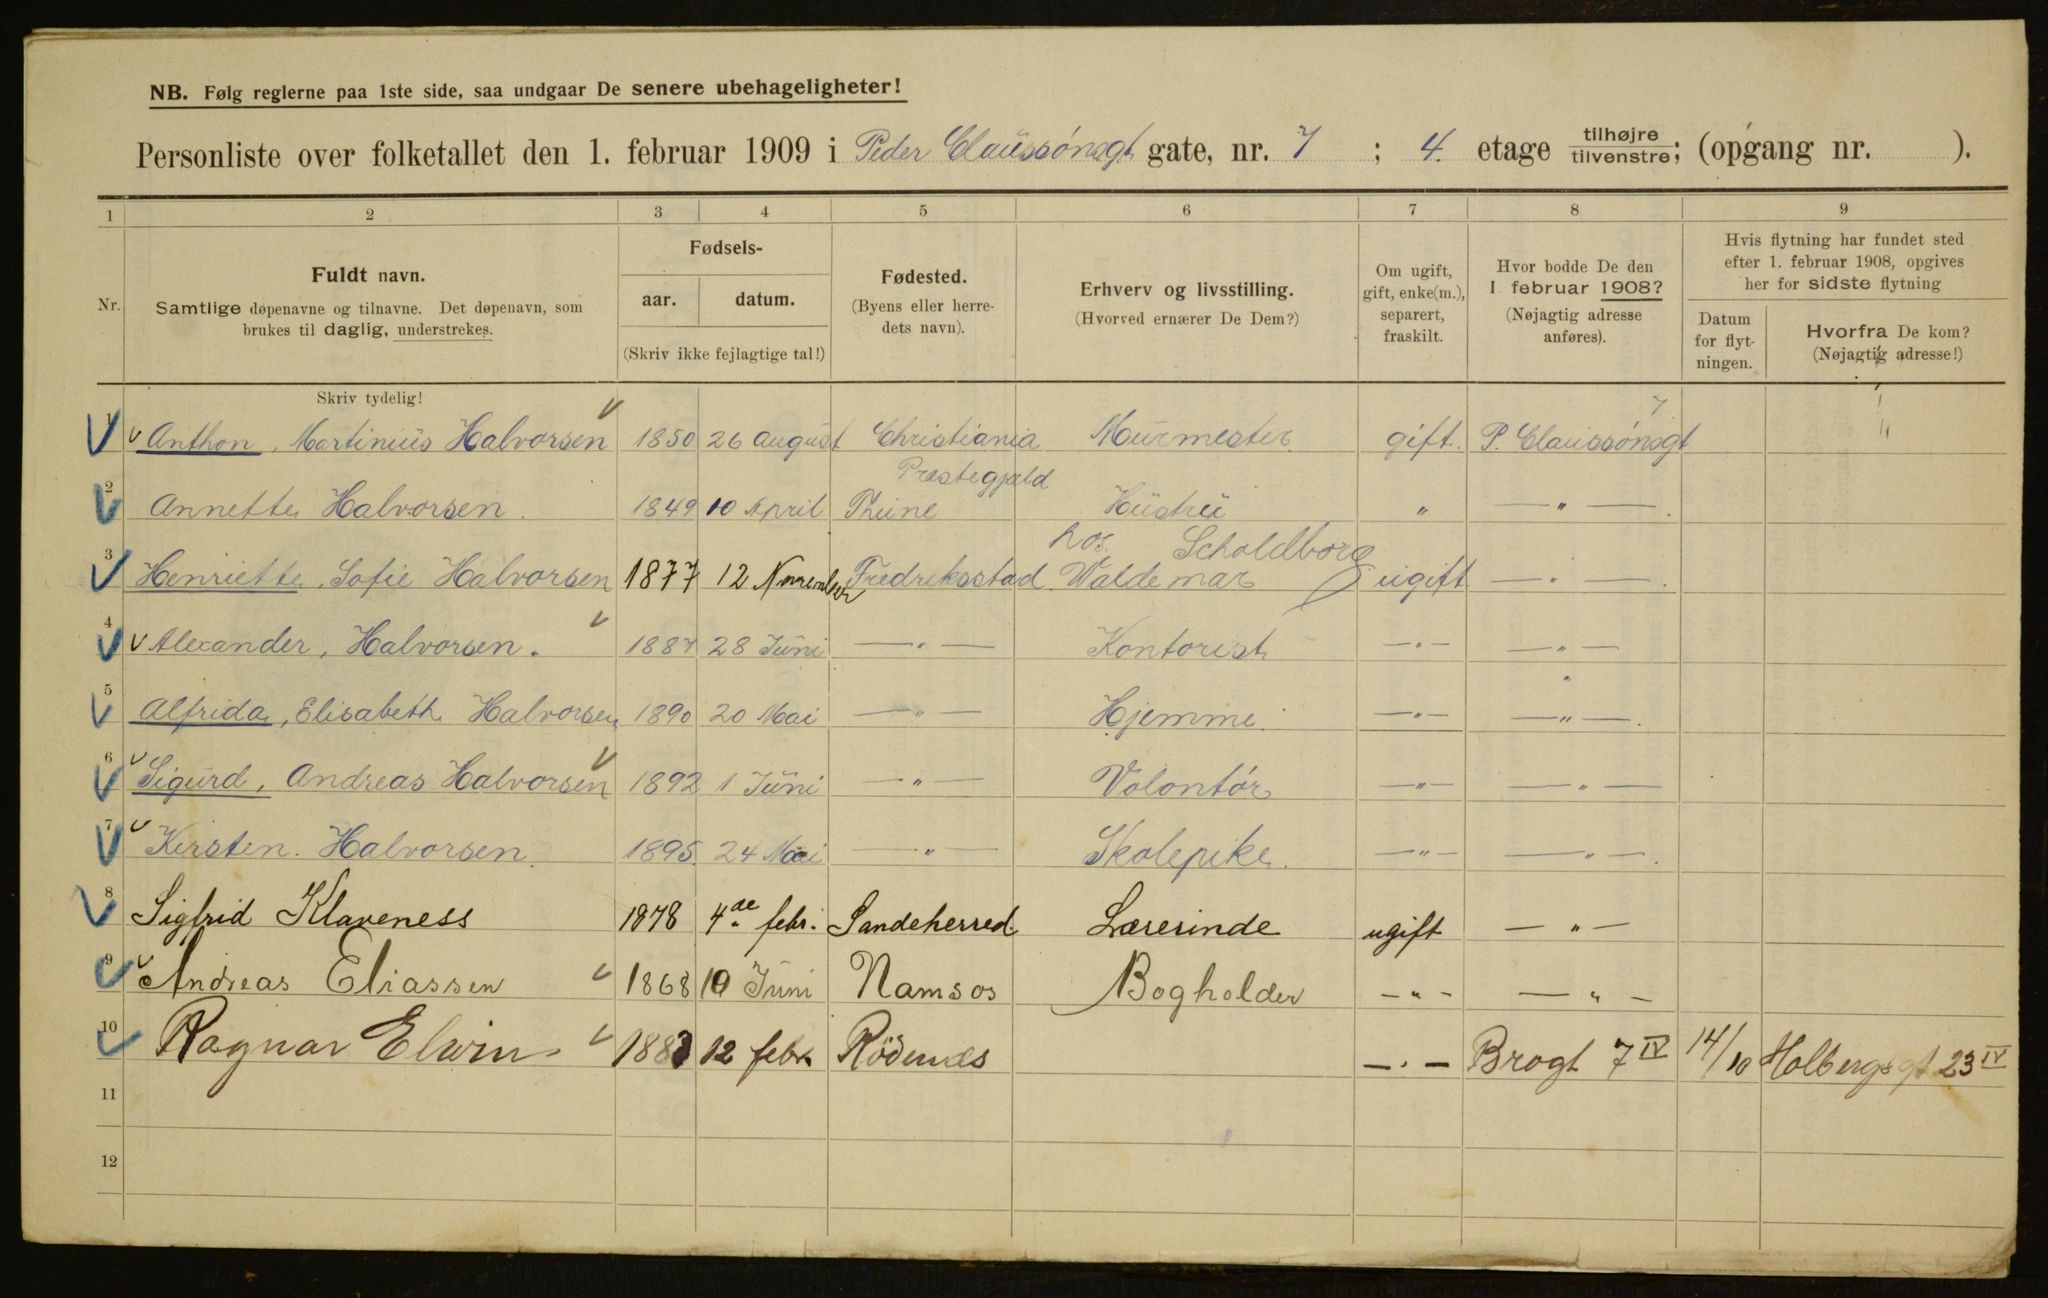 NB. Følg reglerne paa 1ste side, saa undgaar De senere ubehageligheter!
Personliste over folketallet den 1. februar 1909 i Peder Claussónsgt gate, nr. 7 ; 4. etage tilhøjre / tilvenstre; (opgang nr. ).
1 2 3 4 5 6 7 8 9
Nr. Fuldt navn. Samtlige døpenavne og tilnavne. Det døpenavn, som brukes til daglig, understrekes.
Fødsels- aar. datum. (Skriv ikke fejlagtige tal!)
Fødested. (Byens eller herredets navn).
Erhverv og livsstilling. (Hvorved ernærer De Dem?)
Om ugift, gift, enke(m.), separert, fraskilt.
Hvor bodde De den 1 februar 1908? (Nøjagtig adresse anføres).
Hvis flytning har fundet sted efter 1. februar 1908, opgives her for sidste flytning
Datum for flytningen. Hvorfra De kom? (Nøjagtig adresse!)
Skriv tydelig!
1 Anthon, Martinius Halvorsen 1850 26 august Christiania Murmester gift. P. Claussónsgt 7
2 Annette Halvorsen. 1849 10 April Thune Præstegjæld Hustru " — " —.
3 Henriette, Sofie Halvorsen 1877 12 November Fredriksstad hos Waldemar Scholdborg ugift — " —.
4 Alexander, Halvorsen. 1887 28 Juni — " — Kontorist — " — — " —
5 Alfrida, Elisabeth Halvorsen 1890 20 Mai — " — Hjemme. — " — — " —.
6 Sigurd, Andreas Halvorsen 1892 1 Juni — " — Volontór — " — — " —
7 Kirsten. Halvorsen. 1895 24 Mai — " — Skolepike. — " — — " —.
8 Sigfrid Klaveness 1878 4de febr. Sandeherred. Lærerinde ugift — " —
9 Andreas Eliassen 1868 10 Juni Namsos Bogholder — " — — " —
10 Ragnar Elwin 1883 12 febr. Rödenes — " — Brogt 7 IV 14/10 Holbergsgt 23 IV
11
12